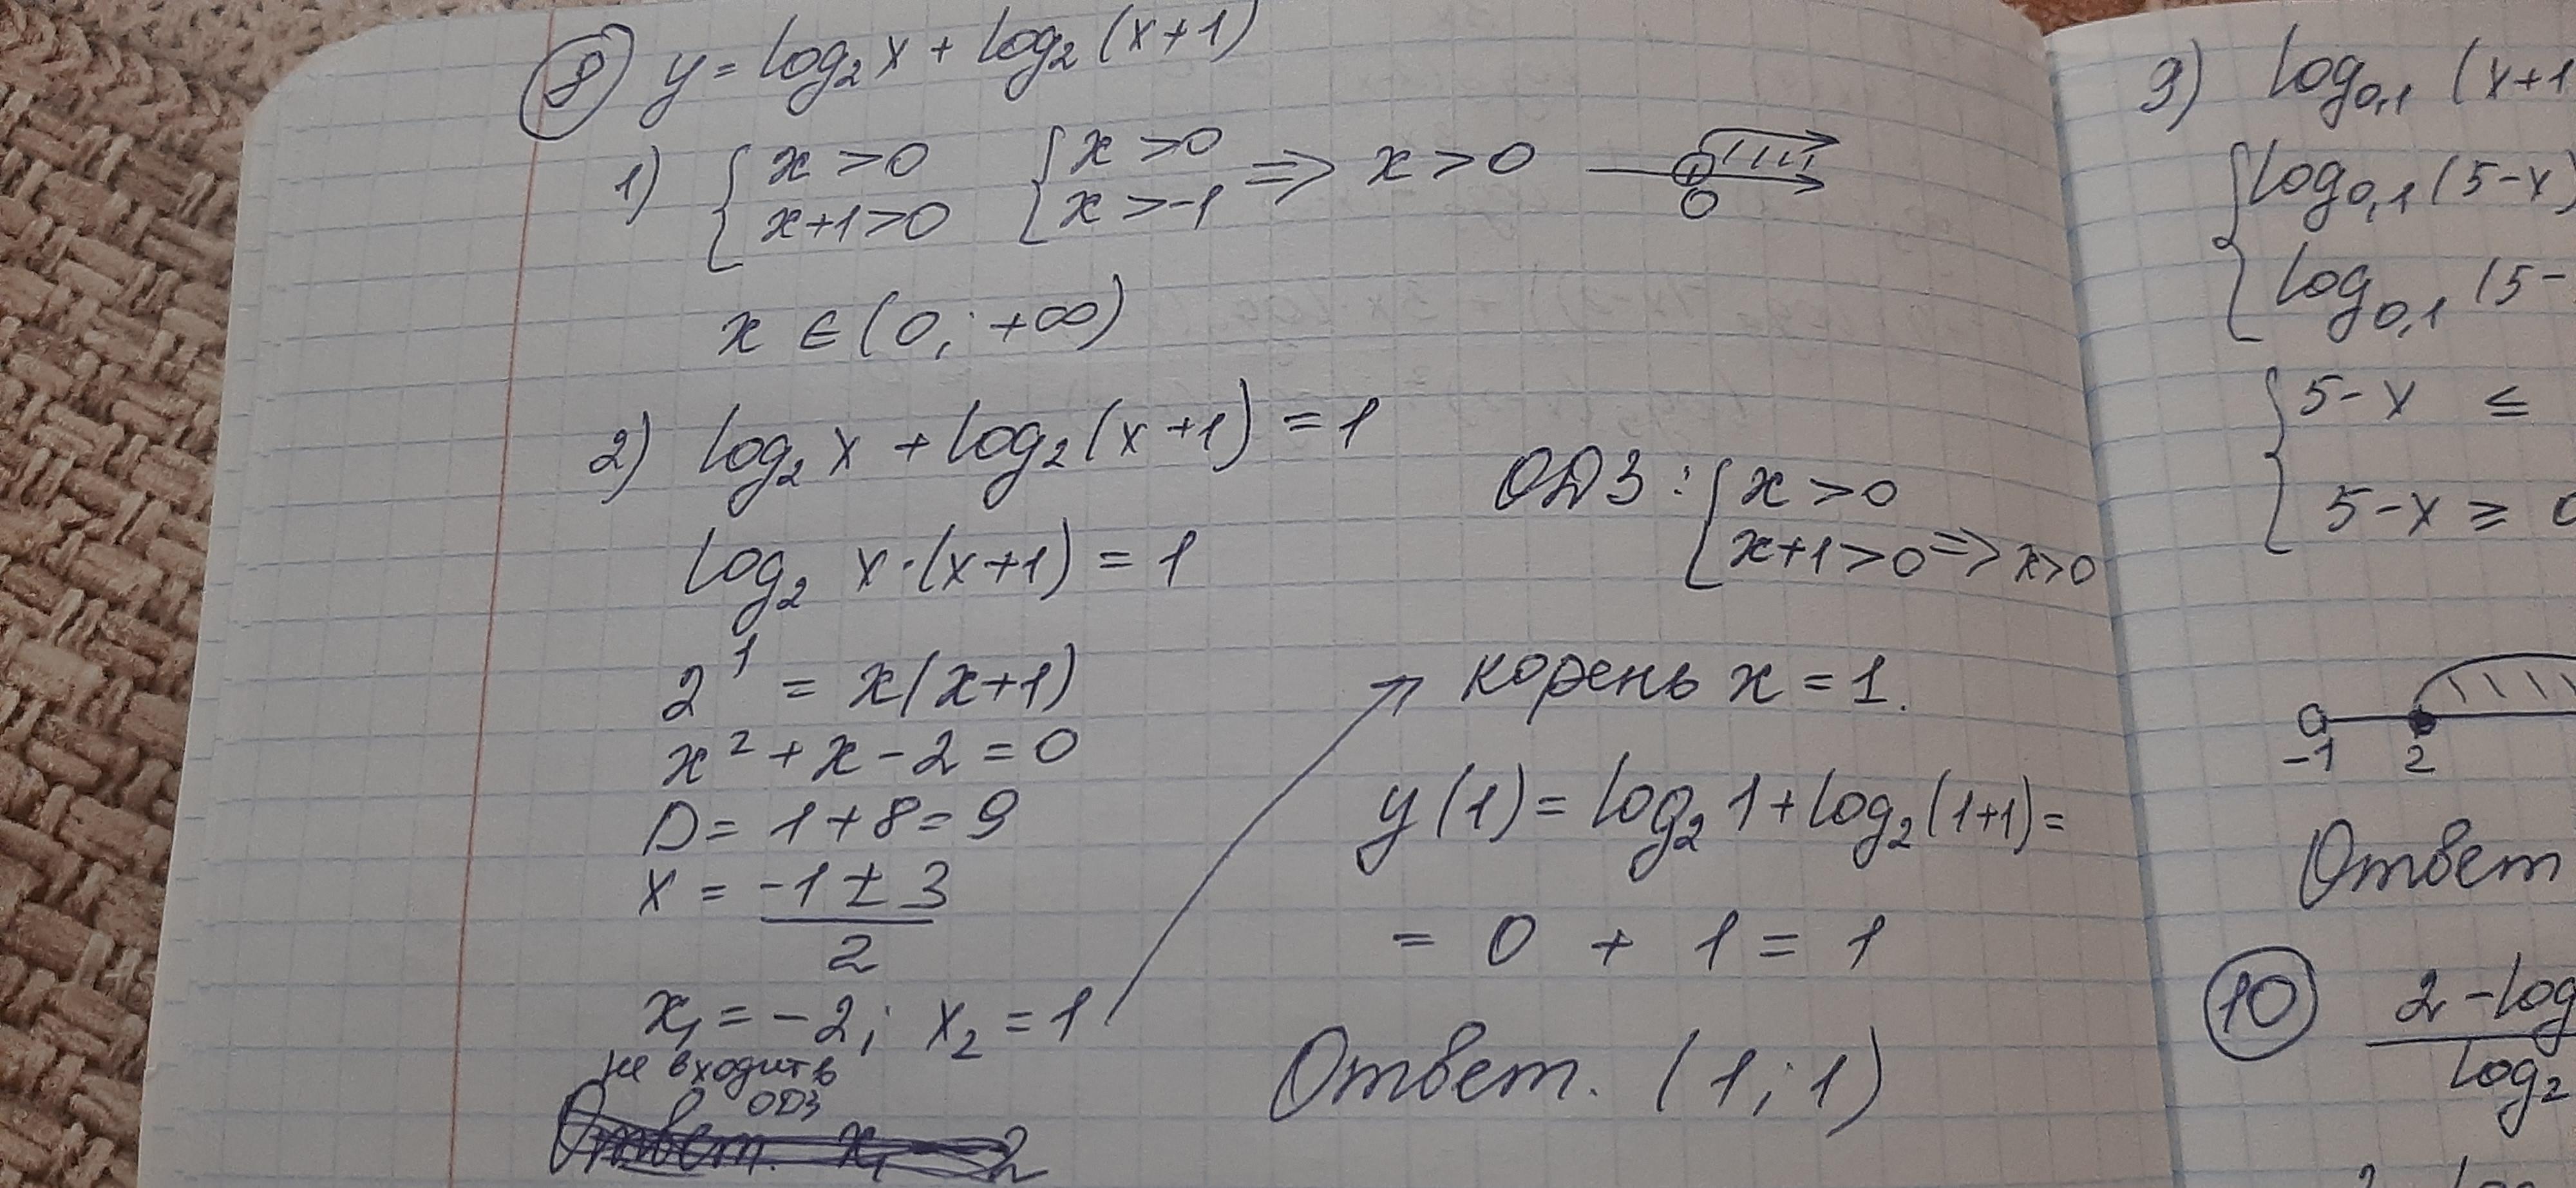 8 y = log₂ x + log₂ (x+1)
1) { x > 0 x+1 > 0 { x > 0 x > -1 => x > 0 0
x ∈ (0; +∞)
2) log₂ x + log₂ (x+1) = 1
log₂ x·(x+1) = 1
2¹ = x(x+1)
x² + x - 2 = 0
D = 1 + 8 = 9
x = (-1 ± 3)/2
x₁ = -2; x₂ = 1
не входить в
ОДЗ
Ответ. x₁
ОДЗ: { x > 0
x+1 > 0 => x > 0
корень x = 1.
y(1) = log₂ 1 + log₂ (1+1) =
= 0 + 1 = 1
Ответ. (1; 1)
9) log₀,₁ (x+1
{ log₀,₁ (5-x)
log₀,₁ (5-
{ 5-x ≤
5-x ≥
-1 2
Ответ
10 2 - log
log₂